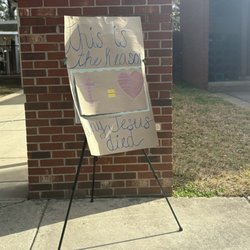 This is
the Reason
my Jesus
died